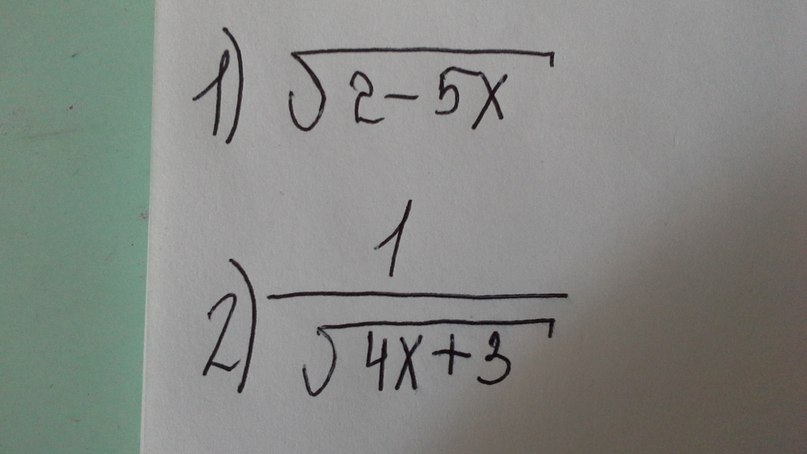 1) √(2-5x)
2) 1/√(4x+3)